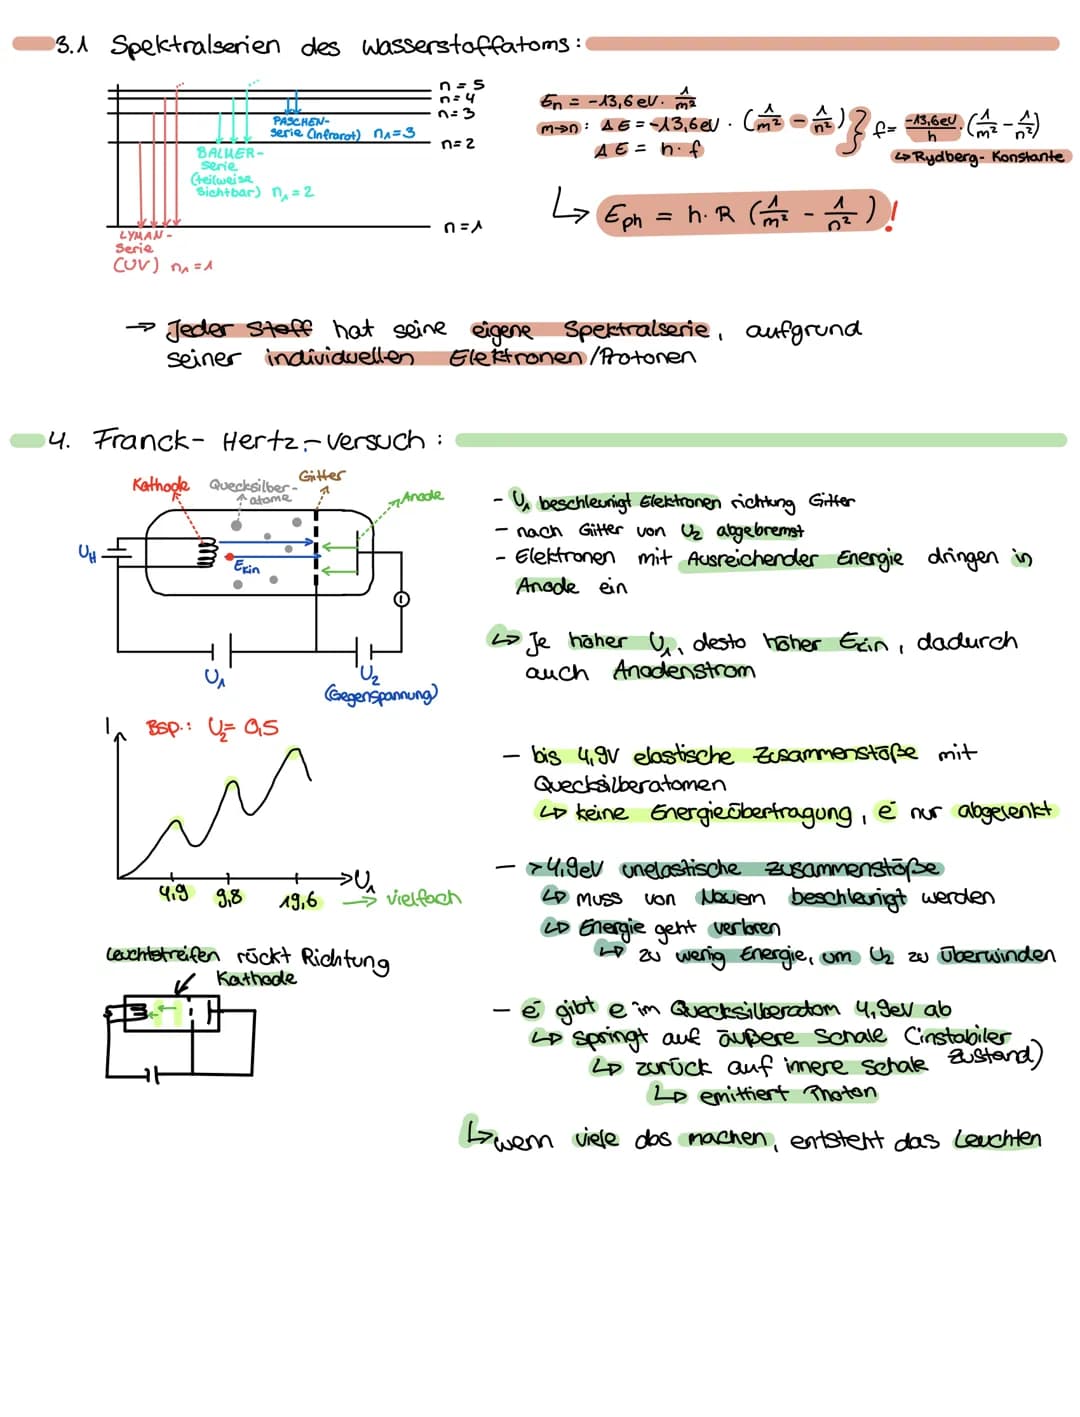 3.1 Spektralserien des Wasserstoffatoms:
n = 5
n = 4
n = 3
n = 2
n = 1
PASCHEN-
Serie (Infrarot) n₁ = 3
BALMER-
Serie
(teilweise
sichtbar) n₁ = 2
LYMAN-
Serie
(UV) n₁ = 1
En = -13,6 eV · 1/m²
m→n: ΔE = -13,6eV · (1/m² - 1/n²)
ΔE = h · f
} f = -13,6eV/h · (1/m² - 1/n²)
↳ Rydberg-Konstante
↳ Eph = h · R (1/m² - 1/n²) !
→ Jeder Stoff hat seine eigene Spektralserie, aufgrund
seiner individuellen Elektronen/Protonen
4. Franck-Hertz-Versuch:
Kathode
Quecksilber-
atome
Gitter
Anode
UH
Ekin
I
U₁
U₂
(Gegenspannung)
- U₁ beschleunigt Elektronen richtung Gitter
- nach Gitter von U₂ abgebremst
- Elektronen mit Ausreichender Energie dringen in
Anode ein
↳ Je höher U₁, desto höher Ekin, dadurch
auch Anodenstrom
I
Bsp.: U₂ = 0,5
4,9 9,8 19,6
U₁
→ vielfach
- bis 4,9V elastische Zusammenstöße mit
Quecksilberatomen
↳ keine Energieübertragung, e⁻ nur abgelenkt
- >4,9eV unelastische Zusammenstöße
↳ muss von Neuem beschleunigt werden
↳ Energie geht verloren
↳ zu wenig Energie, um U₂ zu überwinden
Leuchtstreifen rückt Richtung
Kathode
- e⁻ gibt e⁻ im Quecksilberatom 4,9eV ab
↳ springt auf äußere Schale (instabiler
Zustand)
↳ zurück auf innere Schale
↳ emittiert Photon
↳ wenn viele das machen, entsteht das Leuchten